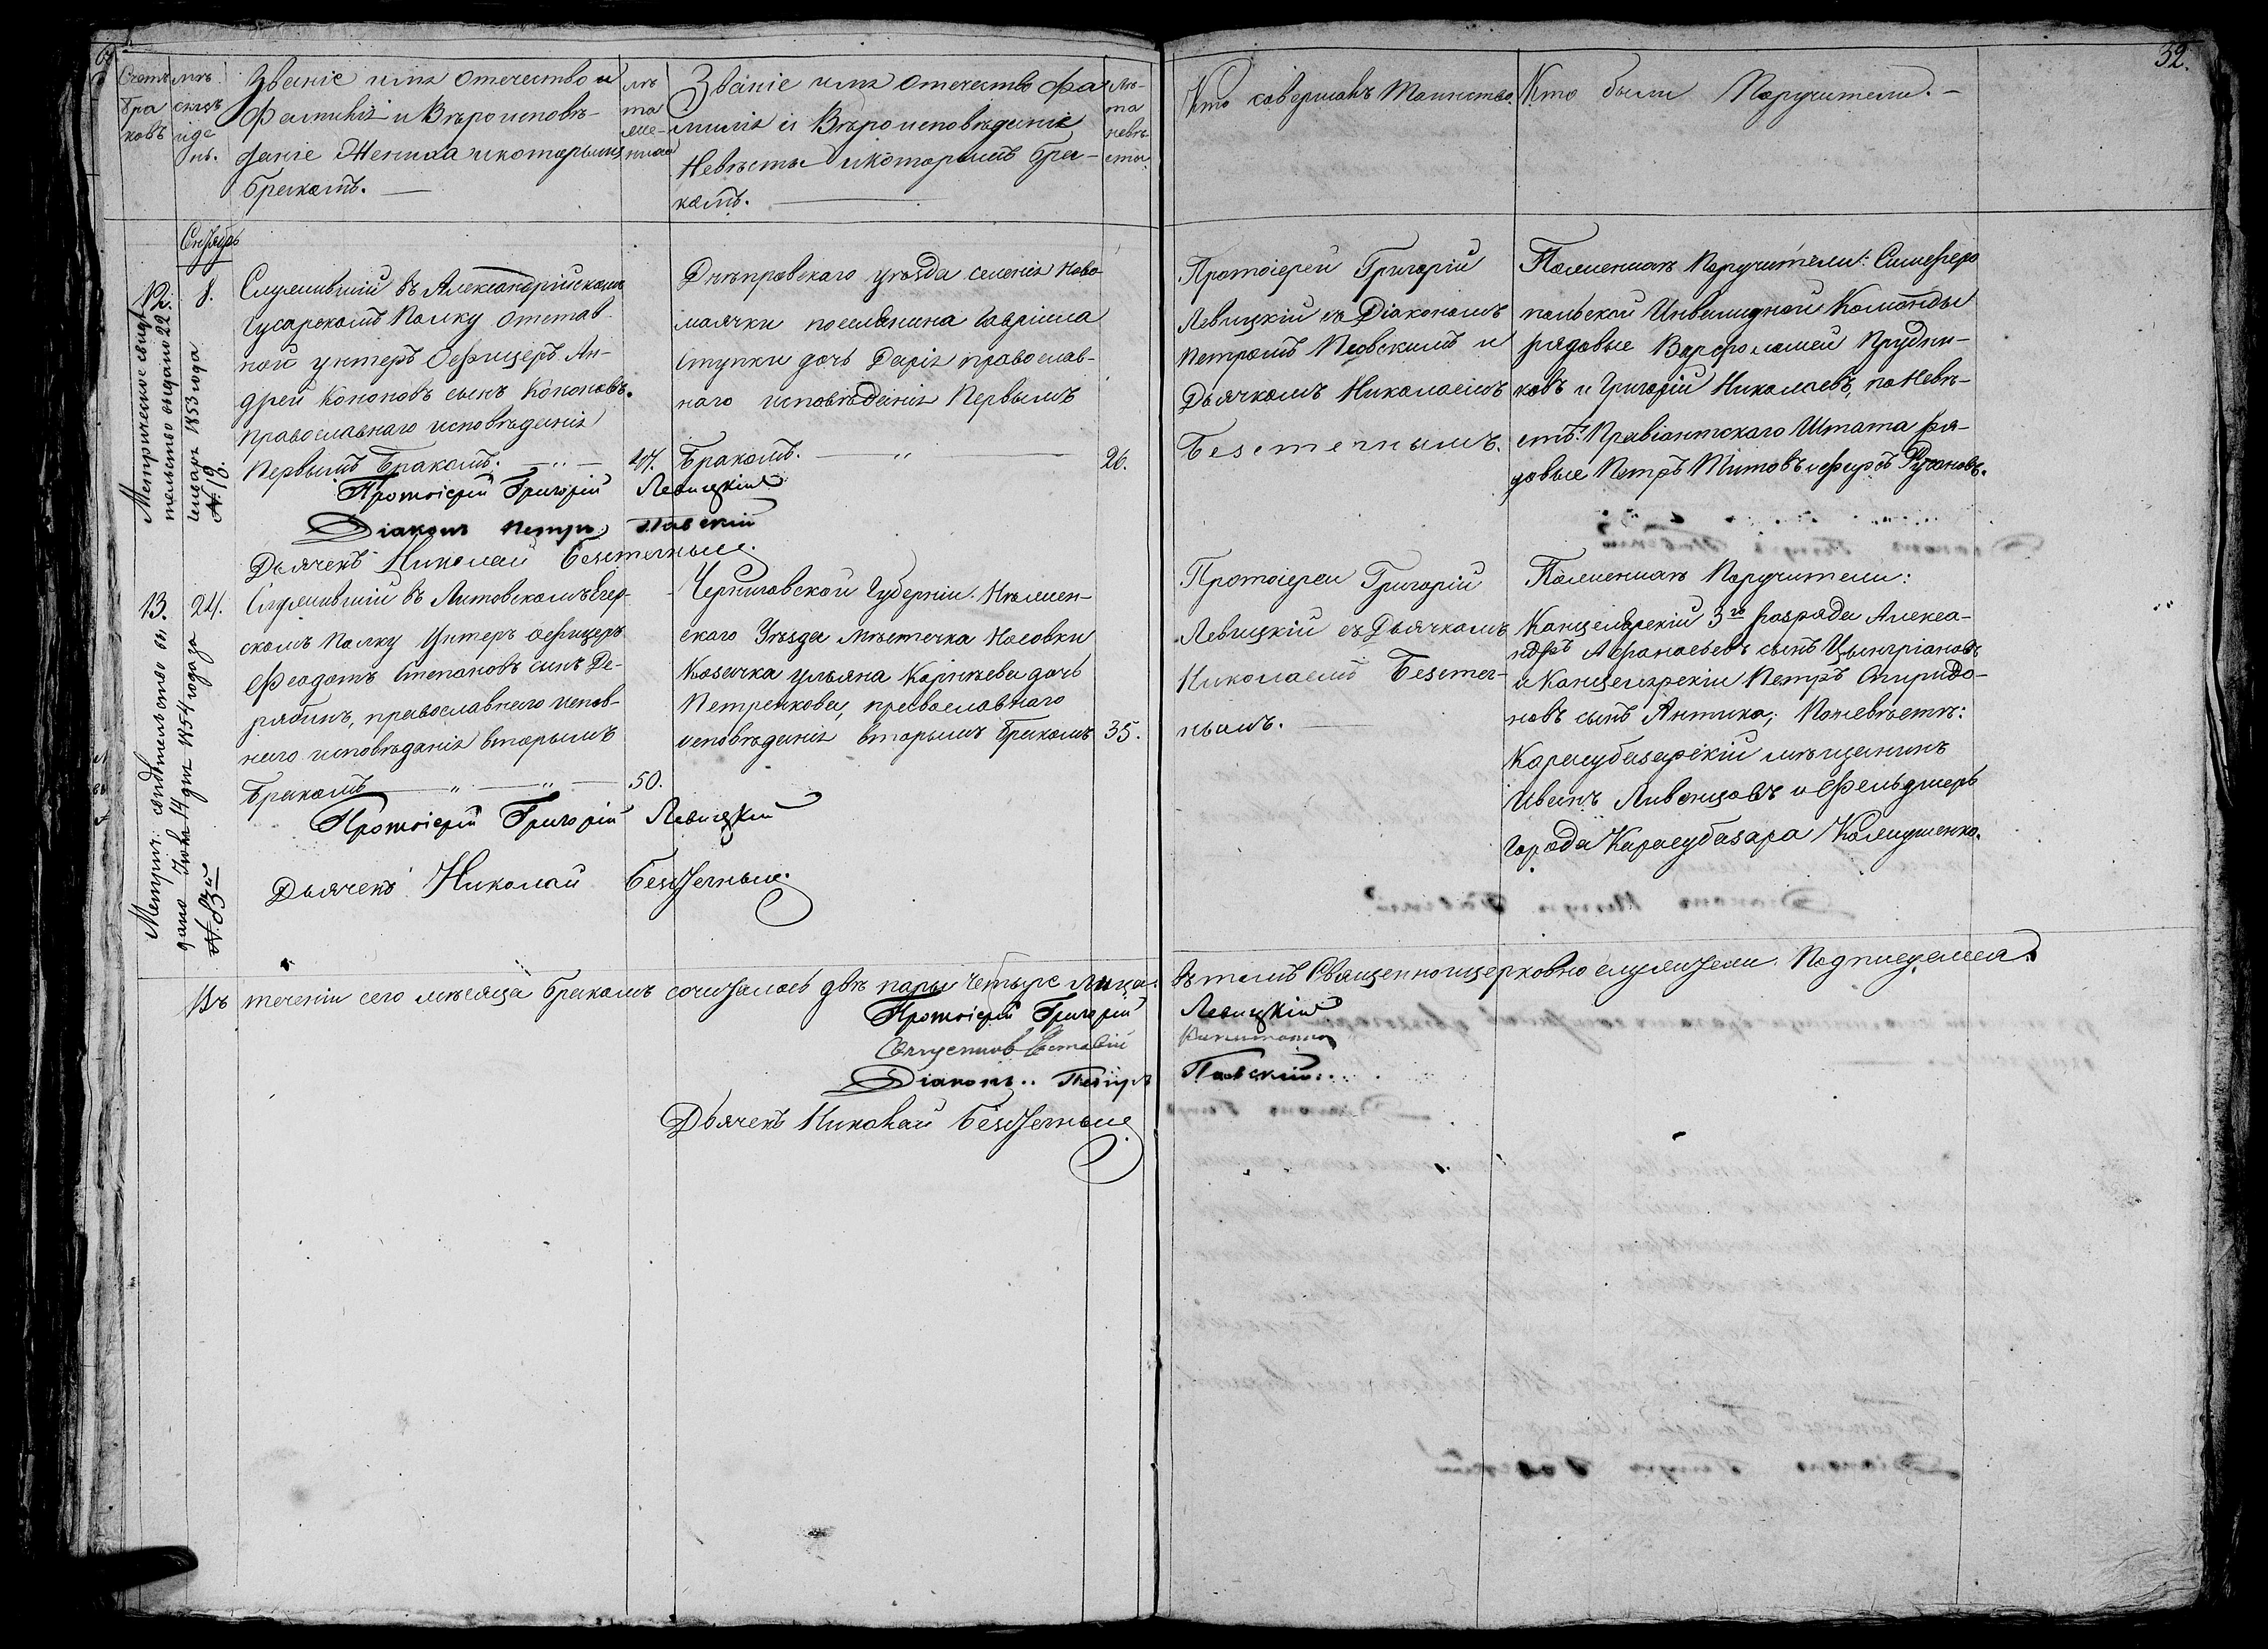 32.
Счетъ
бра
ковъ
мѣ
сяцъ
і де
нь.
Званіе имя отечество и
Фамилія и Вѣроисповѣ-
даніе Жениха и которымъ
бракомъ. —
лѣ
та
же-
ниха
Званіе имя отечество фа
милія и Вѣроисповѣданіе
Невѣсты и которымъ бра-
комъ. —
лѣ-
та
невѣ
сты
Кто совершалъ Таинство.
Кто были Поручители. —
12.
8.
Служившій въ Александрійскомъ
Гусарскомъ Полку отстав
ной унтеръ Офицеръ Ан-
дрей Кононовъ сынъ Кононовъ.
православнаго исповѣданія
Первымъ Бракомъ. — „ —
47.
Днѣпровскаго уѣзда селенія Ново
маячки поселянина Гавріила
Ступки дочь Дарія православ-
наго исповѣданія Первымъ
Бракомъ. — „ —
26.
Протоіерей Григорій
Левицкій съ Діакономъ
Петромъ Павскимъ и
Дьячкомъ Николаемъ
Безстечнымъ.
По женихѣ Поручители: Симферо
польской Инвалидной Команды
рядовые Варфоломей Прудни-
ковъ и Григорій Николаевъ, по Невѣ-
стѣ: Правіантскаго Штата ря-
довые Петръ Титовъ и Федоръ Русановъ.
Метрическое свидѣ
тельство выдано 22
Генваря 1853 года
№ 18.
Протоіерей Григорій Левицкій
Діаконъ Петръ Павскій
Дьячекъ Николай Безстечный.
13.
24.
Служившій въ Литовскомъ Егер-
скомъ Полку Унтеръ офицеръ
Феодотъ Степановъ сынъ Де-
рябинъ, православнаго испов-
наго исповѣданія вторымъ
Бракомъ — „ — „ —
50.
Черниговской Губерніи. Нѣжен-
скаго Уѣзда мѣстечка Носовки
Козачка Ульяна Корнѣева дочь
Петренкова, православнаго
исповѣданія вторымъ Бракомъ
35.
Протоіерей Григорій
Левицкій съ Дьячкомъ
Николаемъ Безстеч-
нымъ. —
По женихѣ Поручители:
Канцелярскій 3го разряда Алекса-
ндръ Афанасьевъ сынъ
и Канцелярскій Петръ Спиридо-
новъ сынъ Антика; По невѣстѣ:
Карасубазарскій мѣщанинъ
Иванъ Ливенцовъ и Фельдшеръ
города Карасубазара Калиушенко.
Метрич: свидѣтельство вы
дано Іюня 14 дня 1854 года за
№ 83й
Протоіерей Григорій Левицкій
Дьячекъ Николай Безстечный.
Въ теченіи сего мѣсяца бракомъ сочеталось двѣ пары четыре лица. Въ томъ Священноицерковно служители Подписуемся.
Протоіерей Григорій Левицкій
Діаконъ Петръ Павскій
Дьячекъ Николай Безстечный